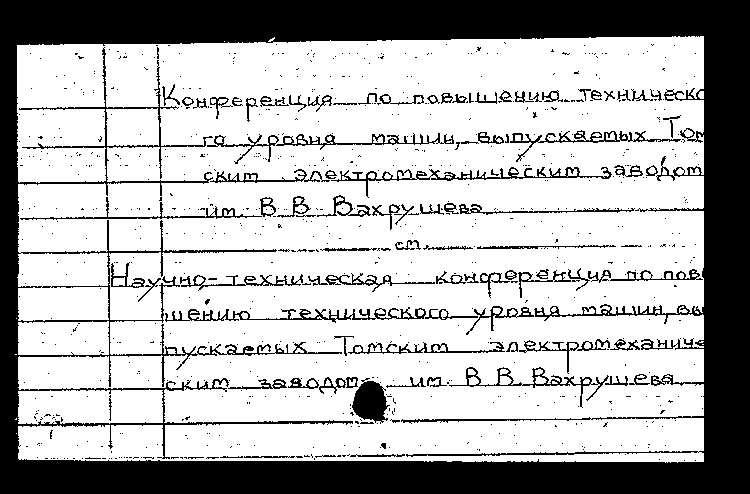 Конференция по повышению техническо
го уровня машин, выпускаемых Том
ским электромеханическим заводом
им. В В Вахрушева
см.
Научно-техническая конференция по повы
шению технического уровня машин, вы
пускаемых Томским электромеханиче
ским заводом им. В В Вахрушева